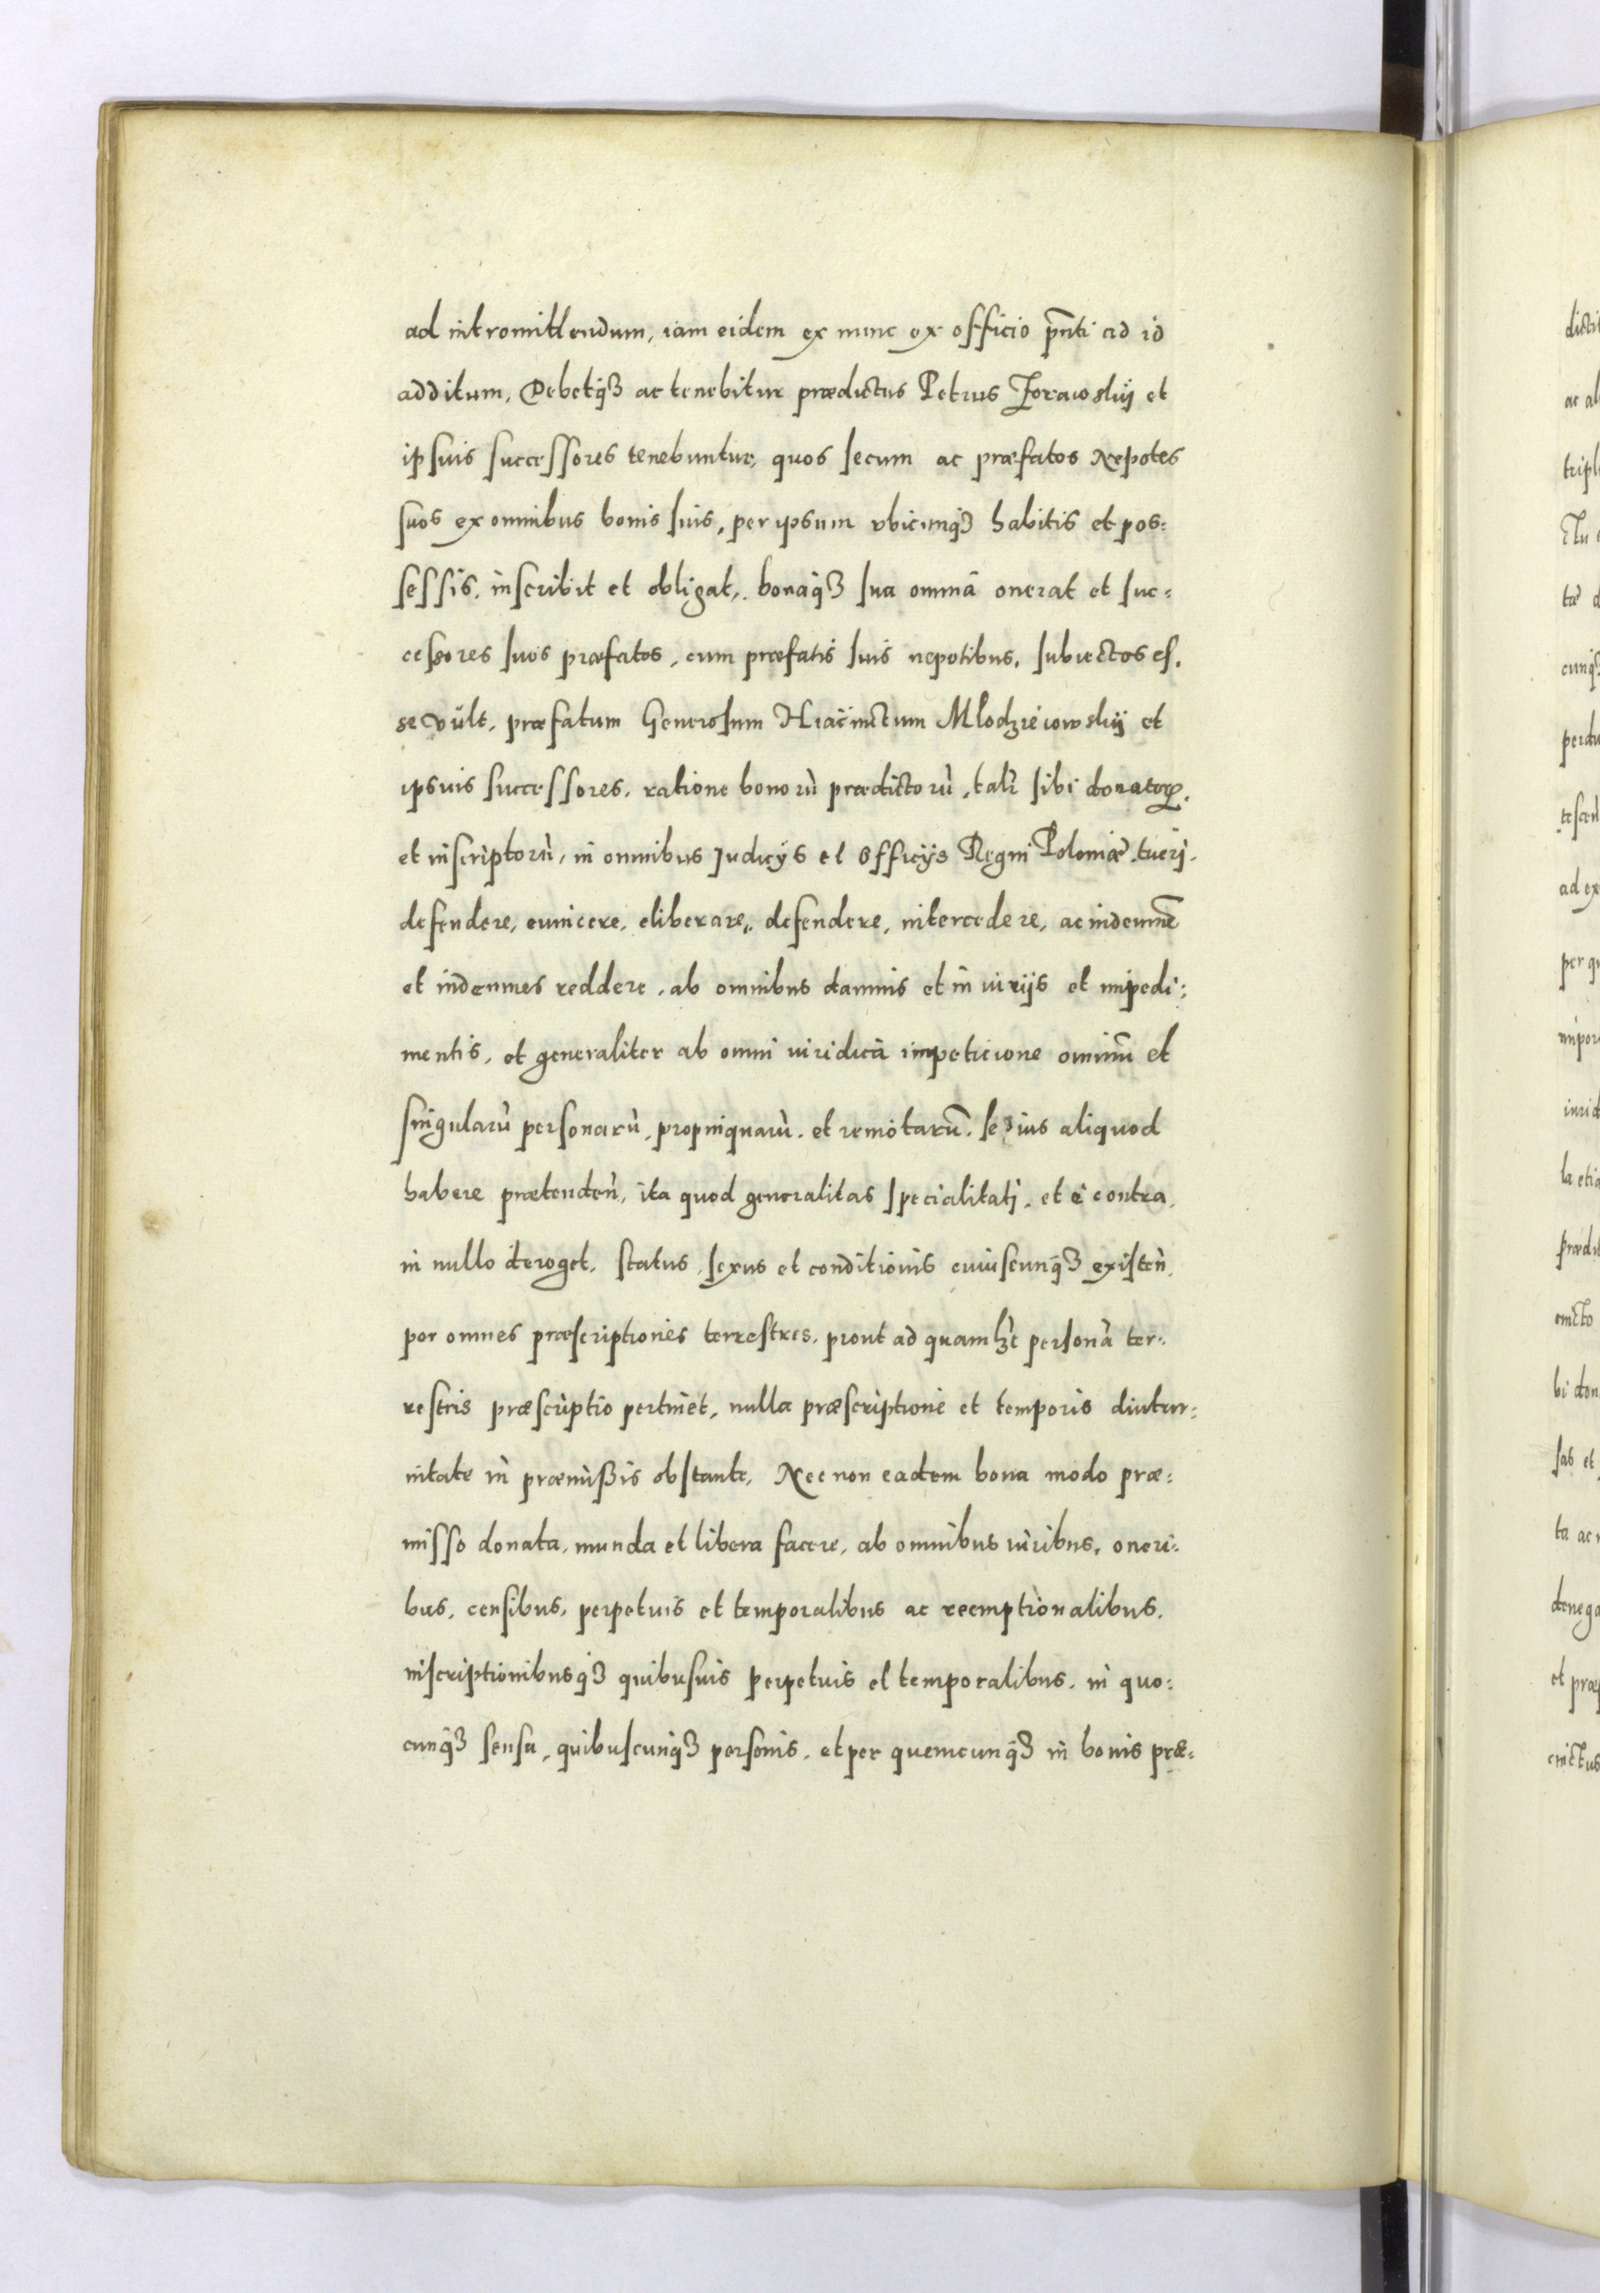 ad intromittendum, iam eidem ex nunc ex officio pñti ad id
additum, Debetq́ꝫ ac tenebitur prædictus Petrus Zorawskij et
ipsuis successores tenebuntur, quos secum ac præfatos Nepotes
suos ex omnibus bonis suis, per ipsum vbicunq́ꝫ habitis et pos=
sessis, inscribit et obligat, bonaq́ꝫ sua omnia onerat et suc=
cessores suos præfatos, cum præfatis suis nepotibus, subiectos es,
se vült, præfatum Generosum Hiacinctum Mlodzieiowskij et
ipsuis successores, ratione bonorù prædictorù, talr̃ sibi donatoꝝ,
et inscriptorù, in omnibus Judicijs et Officijs Regni Poloniæ, tuerj,
defendere, euincere, eliberare, defendere, intercedere, ac indemnē
et indemnes reddere, ab omnibus damnis et iniurijs et impedi=
mentis, et generaliter ab omni iuridicà impeticione omniū et
singularù personarù, propinquarù, et remotarū, se ius aliquod
habere prætendeǹ, ita quod generalitas specialitatj, et è contra,
in nullo deroget, status, sexus et conditionis cuiuscunq́ꝫ existeǹ,
per omnes præscriptiones terrestres, prout ad quamlꝫt personà ter=
restris præscriptio pertinet, nulla præscriptione et temporis diutur=
nitate in præmißis obstante, Nec non eadem bona modo præ=
misso donata, munda et libera facere, ab omnibus iuribus, oneri=
bus, censibus, perpetuis et temporalibus ac reemptionalibus,
inscriptionibusq́ꝫ quibusuis perpetuis et temporalibus, in quo=
cunq́ꝫ sensu, quibuscunq́ꝫ personis, et per quemcunq́ꝫ in bonis præ=